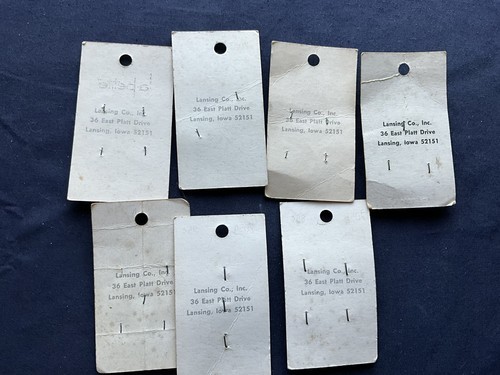 Lansing Co., Inc.
36 East Platt Drive
Lansing, Iowa 52151
Lansing Co., Inc.
36 East Platt Drive
Lansing, Iowa 52151
Lansing Co., Inc.
36 East Platt Drive
Lansing, Iowa 52151
Lansing Co., Inc.
36 East Platt Drive
Lansing, Iowa 52151
Lansing Co., Inc.
36 East Platt Drive
Lansing, Iowa 52151
Lansing Co., Inc.
36 East Platt Drive
Lansing, Iowa 52151
Lansing Co., Inc.
36 East Platt Drive
Lansing, Iowa 52151